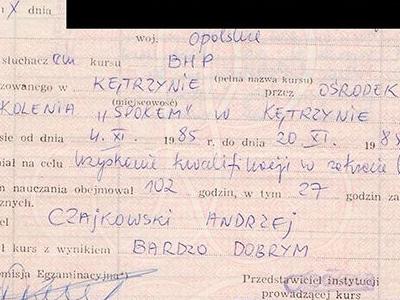 X dnia
woj. opolskie
słuchacz em kursu BHP
zowanego w KĘTRZYNIE (pełna nazwa kursu) przez OŚRODEK
KOLENIA (miejscowość) „SPOŁEM" W KĘTRZYNIE
sie od dnia 4. XI. 1985 r. do dnia 20 XI. 198
miał na celu uzyskanie kwalifikacji w zakresie
m nauczania obejmował 102 godzin, w tym 27 godzin za
znych.
el CZAJKOWSKI ANDRZEJ
ł kurs z wynikiem BARDZO DOBRYM
omisja Egzaminacyjna Przedstawiciel instytucji
prowadzącej kurs